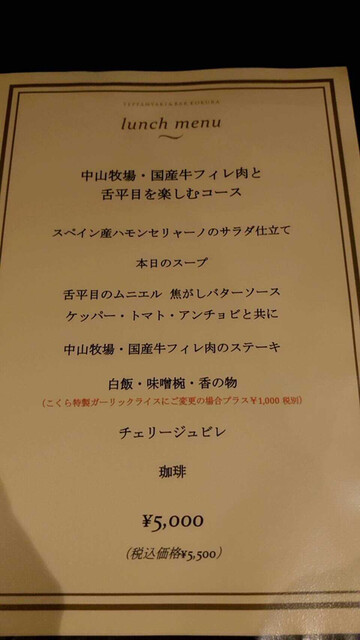 TEPPANYAKI & BAR KOKURA
lunch menu
中山牧場・国産牛フィレ肉と
舌平目を楽しむコース
スペイン産ハモンセリャーノのサラダ仕立て
本日のスープ
舌平目のムニエル 焦がしバターソース
ケッパー・トマト・アンチョビと共に
中山牧場・国産牛フィレ肉のステーキ
白飯・味噌椀・香の物
(こくら特製ガーリックライスにご変更の場合プラス¥1,000 税別)
チェリージュビレ
珈琲
¥5,000
(税込価格¥5,500)